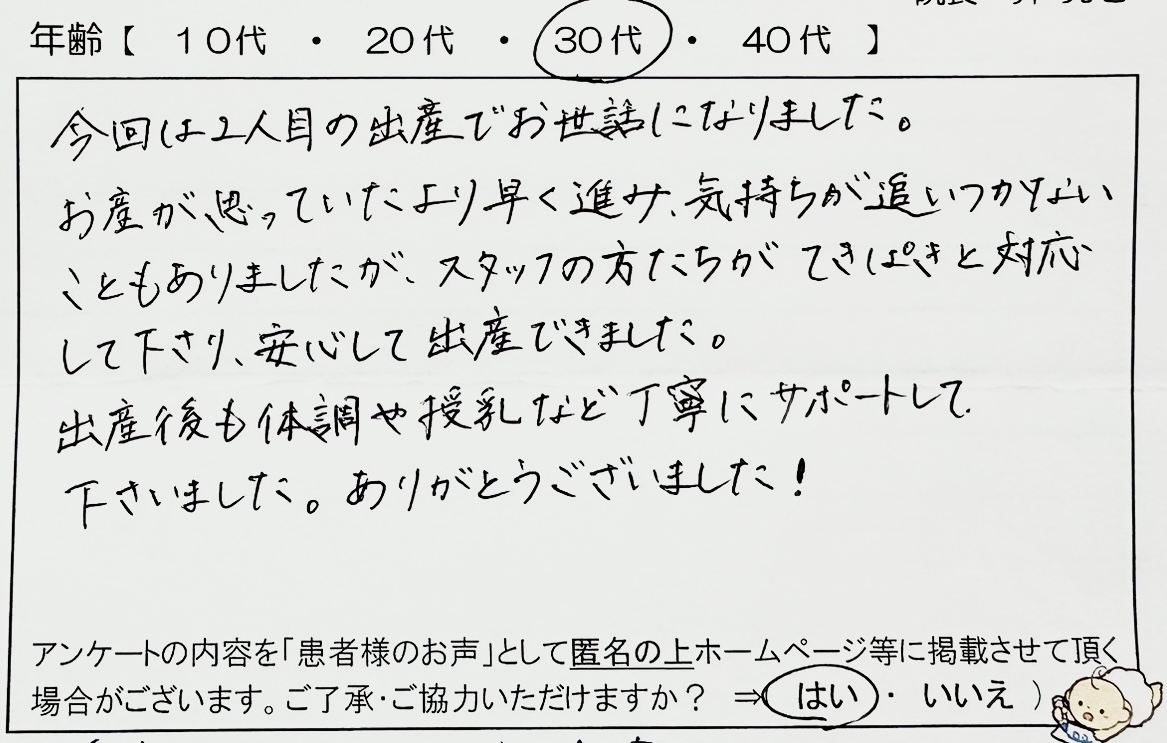 年齢【 10代 ・ 20代 ・ 30代 ・ 40代 】
今回は2人目の出産でお世話になりました。
お産が思っていたより早く進み、気持ちが追いつかない
こともありましたが、スタッフの方たちがてきぱきと対応
して下さり、安心して出産できました。
出産後も体調や授乳など丁寧にサポートして
下さいました。ありがとうございました!
アンケートの内容を「患者様のお声」として匿名の上ホームページ等に掲載させて頂く
場合がございます。ご了承・ご協力いただけますか? ⇒ はい ・ いいえ )